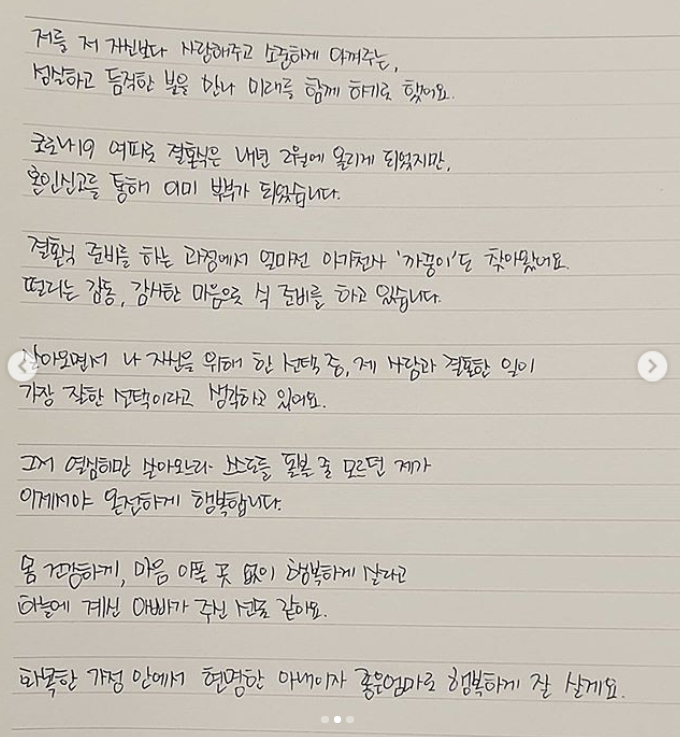 저를 저 자신보다 사랑해주고 소중하게 아껴주는,
성실하고 듬직한 분을 만나 미래를 함께 하기로 했어요.
코로나19 여파로 결혼식은 내년 2월에 올리게 되었지만,
혼인신고를 통해 이미 부부가 되었습니다.
결혼식 준비를 하는 과정에서 얼마전 아가천사 '까꿍이'도 찾아왔어요.
떨리는 감동, 감사한 마음으로 식 준비를 하고 있습니다.
살아오면서 나 자신을 위해 한 선택 중, 제 사람과 결혼한 일이
가장 잘한 선택이라고 생각하고 있어요.
그저 열심히만 살아오느라 스스로를 돌볼 줄 모르던 제가
이제서야 온전하게 행복합니다.
몸 건강하게, 마음 아픈 곳 없이 행복하게 살라고
하늘에 계신 아빠가 주신 선물 같아요.
화목한 가정 안에서 현명한 아내이자 좋은엄마로 행복하게 잘 살게요.